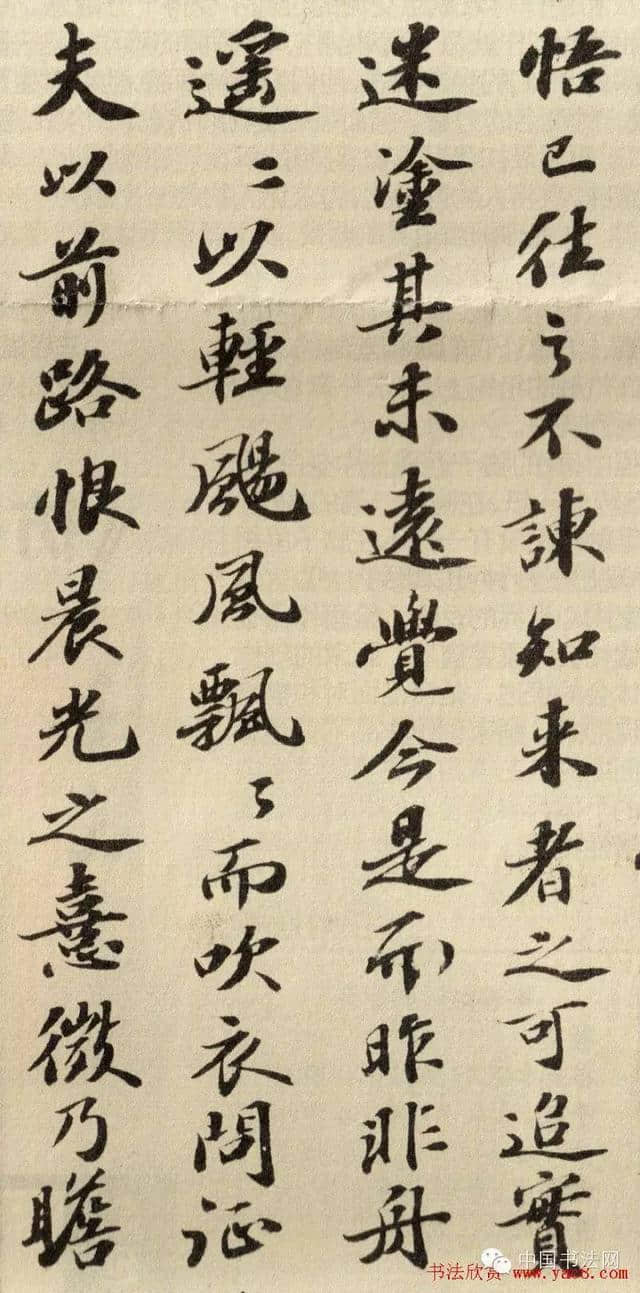 悟已往之不諫知来者之可追實
迷塗其未遠覺今是而昨非舟
遥〻以輕颺風飄〻而吹衣問征
夫以前路恨晨光之憙微乃瞻
中国书法网
书法欣赏 www.yac8.com